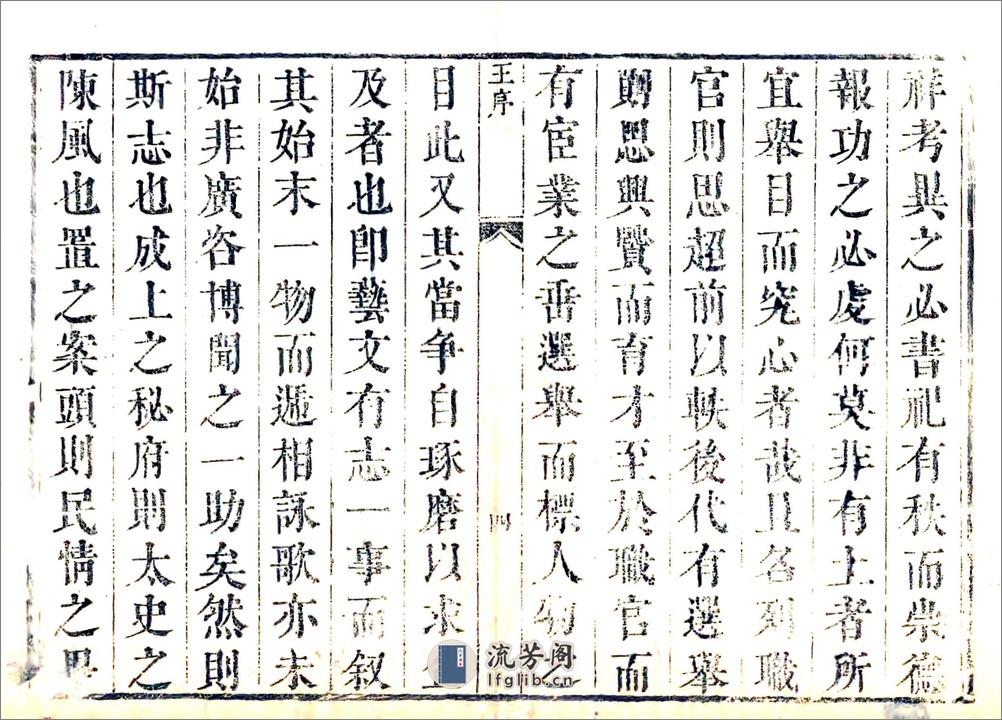 祥考異之必書祀有秩而崇德
報功之必虔何莫非有土者所
宜舉目而究心者哉且各列職
官則思超前以軼後代有選舉
則思興賢而育才至於職官而
有宦業之垂選舉而標人物
王序
四
目此又其當争自琢磨以求
及者也即藝文有志一事而叙
其始末一物而遞相詠歌亦未
始非廣咨博聞之一助矣然則
斯志也成上之秘府則太史之
陳風也置之案頭則民情之
流芳阁
lfglib.cn